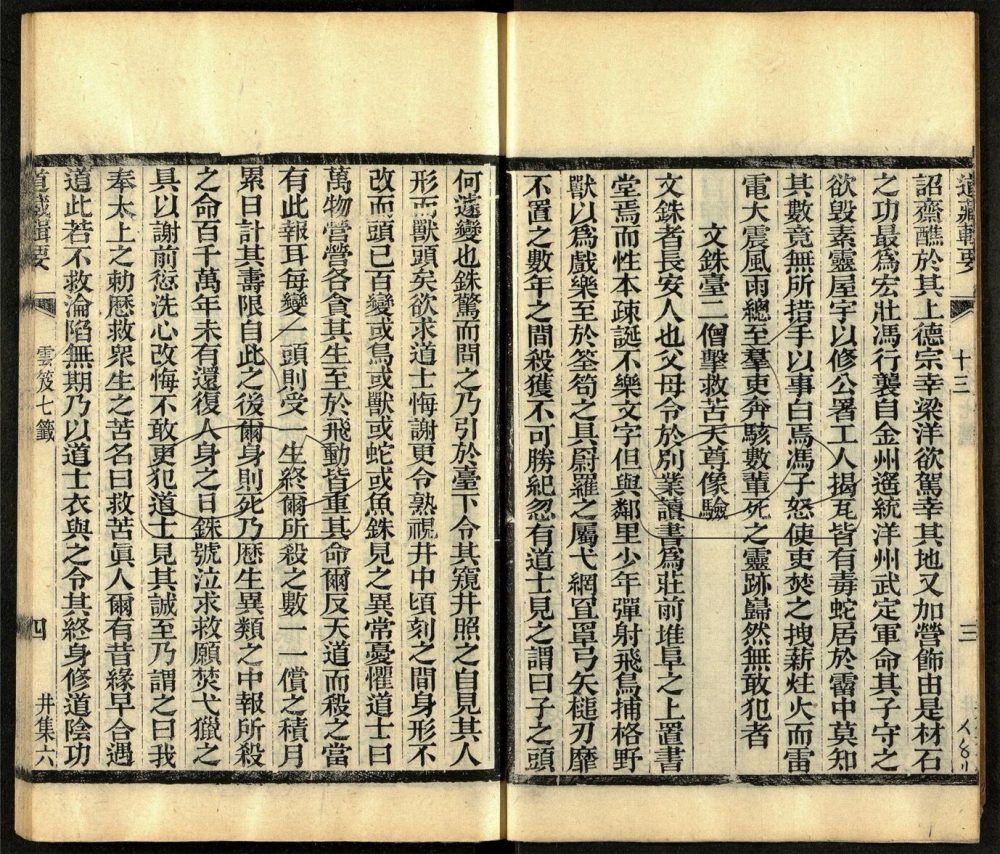 道藏輯要 十三 三
詔齋醮於其上德宗幸梁洋欲駕幸其地又加營飾由是材石
之功最爲宏壯馮行襲自金州遷統洋州武定軍命其子守之
欲毁素靈屋宇以修公署工人揭瓦皆有毒蛇居於霤中莫知
其數竟無所措手以事白焉馮子怒使吏焚之拽薪炷火而雷
電大震風雨總至羣吏奔駭數輩死之靈跡歸然無敢犯者
文銖臺二僧擊救苦天尊像驗
文銖者長安人也父母令於別業讀書爲莊前堆阜之上置書
堂焉而性本疎誕不樂文字但與鄰里少年彈射飛鳥捕格野
獸以爲戲樂至於筌笱之具罻羅之屬弋網罝罩弓矢槌刃靡
不置之數年之間殺獲不可勝紀忽有道士見之謂曰子之頭
何遽變也銖驚而問之乃引於臺下令其窺井照之自見其人
形而獸頭矣欲求道士悔謝更令熟視井中頃刻之間身形不
改而頭已百變或鳥或獸或蛇或魚銖見之異常憂懼道士曰
萬物營營各貪其生至於飛動皆重其命爾反天道而殺之當
有此報耳每變一頭則受一生終爾所殺之數一一償之積月
累日計其壽限自此之後爾身則死乃歷生異類之中報所殺
之命百千萬年未有還復人身之日銖號泣求救願焚弋獵之
具以謝前愆洗心改悔不敢更犯道士見其誠至乃謂之曰我
奉太上之勅歷救衆生之苦名曰救苦眞人爾有昔緣早合遇
道此若不救淪陷無期乃以道士衣與之令其終身修道陰功
道藏輯要 雲笈七籤 四 井集六